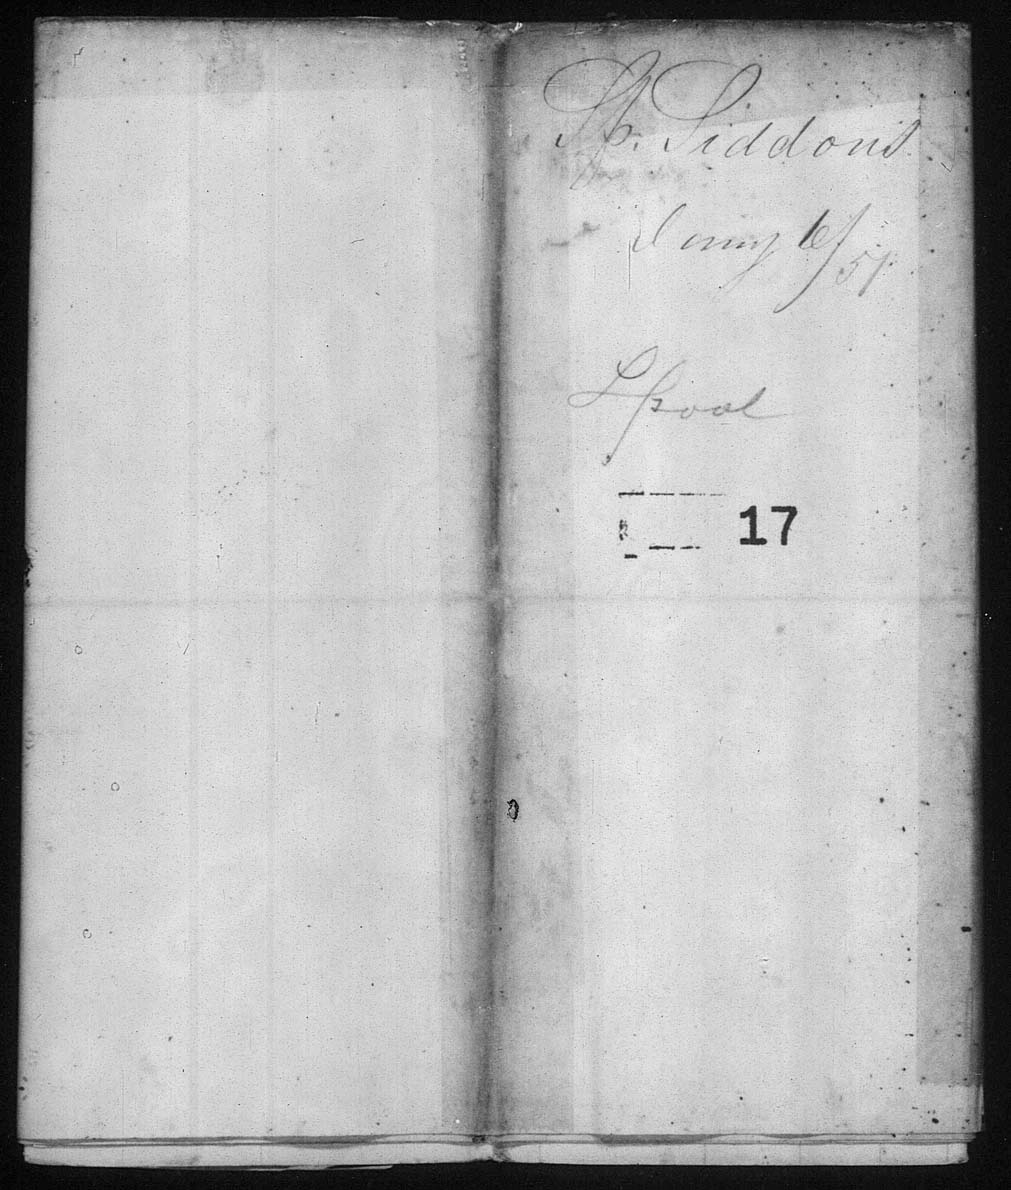 Sp. Siddons
Jany 6/51
Lpool
17